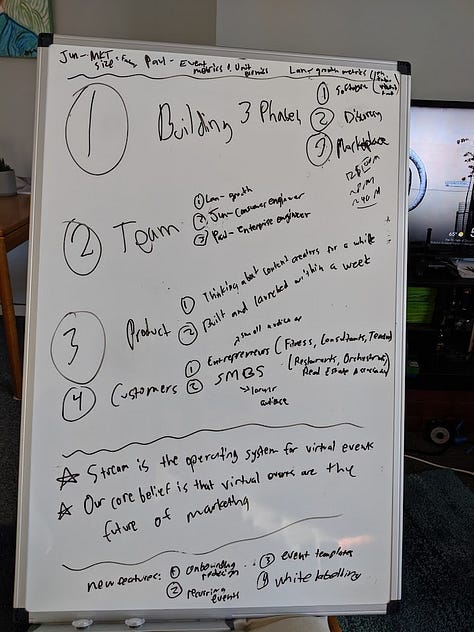 Jun - MKT size Paul - Event metrics & Unit Lan - growth metrics
① Building 3 Phases
① Software
② Discovery
③ Marketplace
② Team
① Lan - growth
② Jun - Consumer engineer
③ Paul - Enterprise engineer
③ Product
① Thinking about content creators for a while
② Built and launched within a week
④ Customers
small audience
① Entrepreneurs (Fitness, Consultants,
② SMBS (Restaurants, Orchestras,
Real Estate
larger
audience
☆ Stream is the operating system for virtual events
☆ Our core belief is that virtual events are the
future of marketing
new features: ① onboarding
② recurring events
③ event templates
④ white labelling